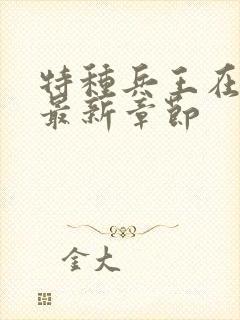 特種兵王在
最新章節
金大